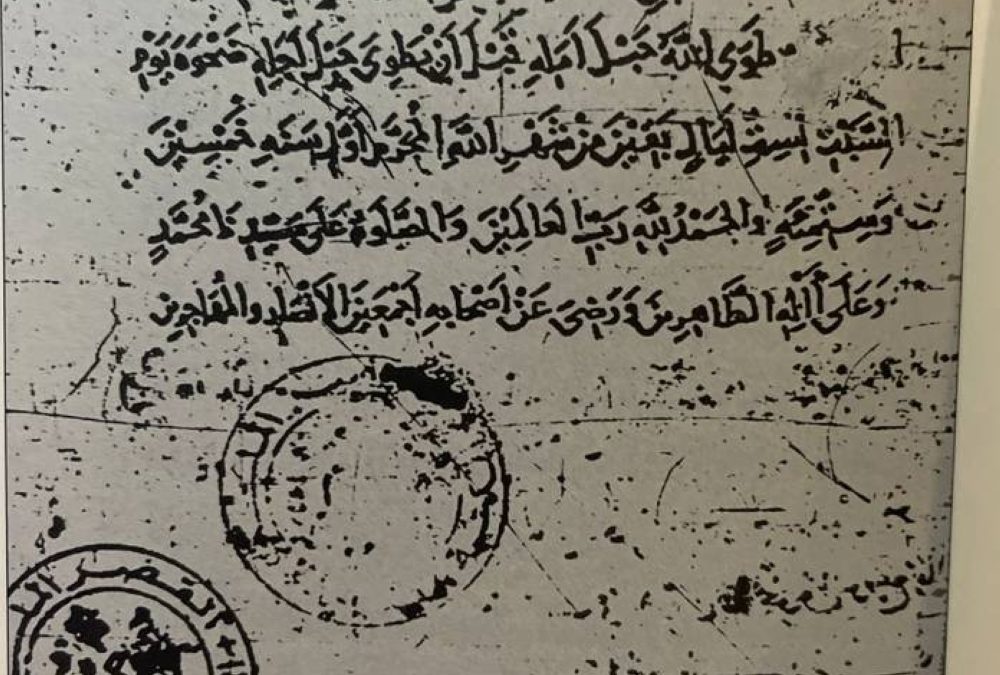 طَوَى اللَّهُ حَبْلَ أَمَلِهِ قَبْلَ أَنْ يَطْوِيَ حَبْلَ أَجَلِهِ ضَحْوَةَ يَوْمِ
السَّبْتِ لِسِتِّ لَيَالٍ بَقَيْنَ مِنْ شَهْرِ اللَّهِ الْمُحَرَّمِ أَوَّلَ سَنَةِ خَمْسِينَ
وَسِتِّمِئَةٍ وَالْحَمْدُ لِلَّهِ رَبِّ الْعَالَمِينَ وَالصَّلَوةُ عَلَى سَيِّدِنَا مُحَمَّدٍ
وَعَلَى أَلِهِ الطَّاهِرِينَ وَرَضِيَ عَنْ أَصْحَابِهِ أَجْمَعِينَ الْأَنْصَارِ وَالْمُهَاجِرِينَ
القصر